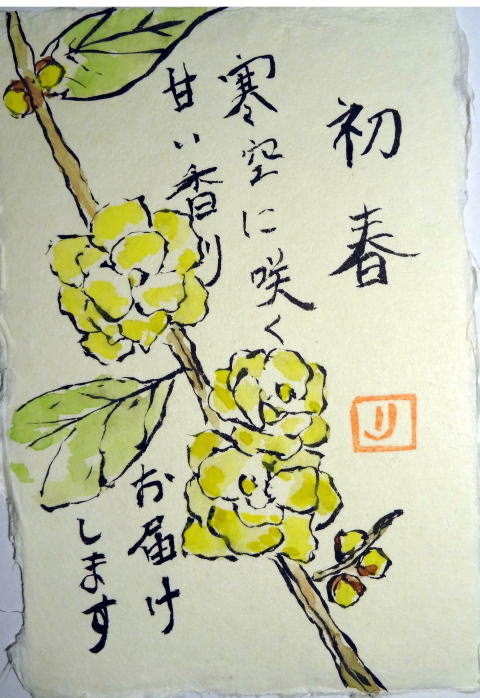 初春
寒空に咲く
甘い香り
お届け
します
り